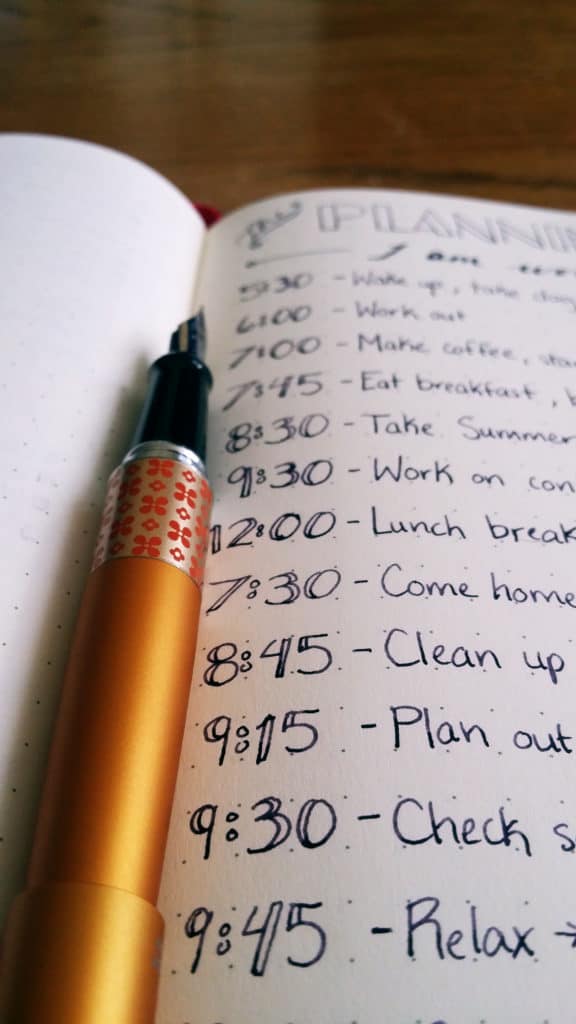 PLANNIN
I am
5:30 - Wake up, take dog
6:00 - Work out
7:00 - Make coffee, sta
7:45 - Eat breakfast, b
8:30 - Take Summer
9:30 - Work on con
12:00 - Lunch break
7:30 - Come home
8:45 - Clean up
9:15 - Plan out
9:30 - Check s
9:45 - Relax →